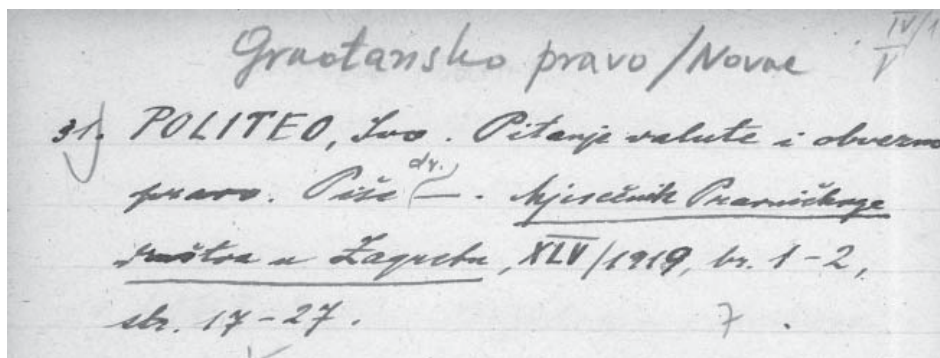 IV/1
V
Građansko pravo / Novac
31. POLITEO, Ivo. Pitanje valute i obvezno
pravo. Piše dr. —. Mjesečnik Pravničkoga
društva u Zagrebu, XLV/1919, br. 1-2,
str. 17-27. 7.